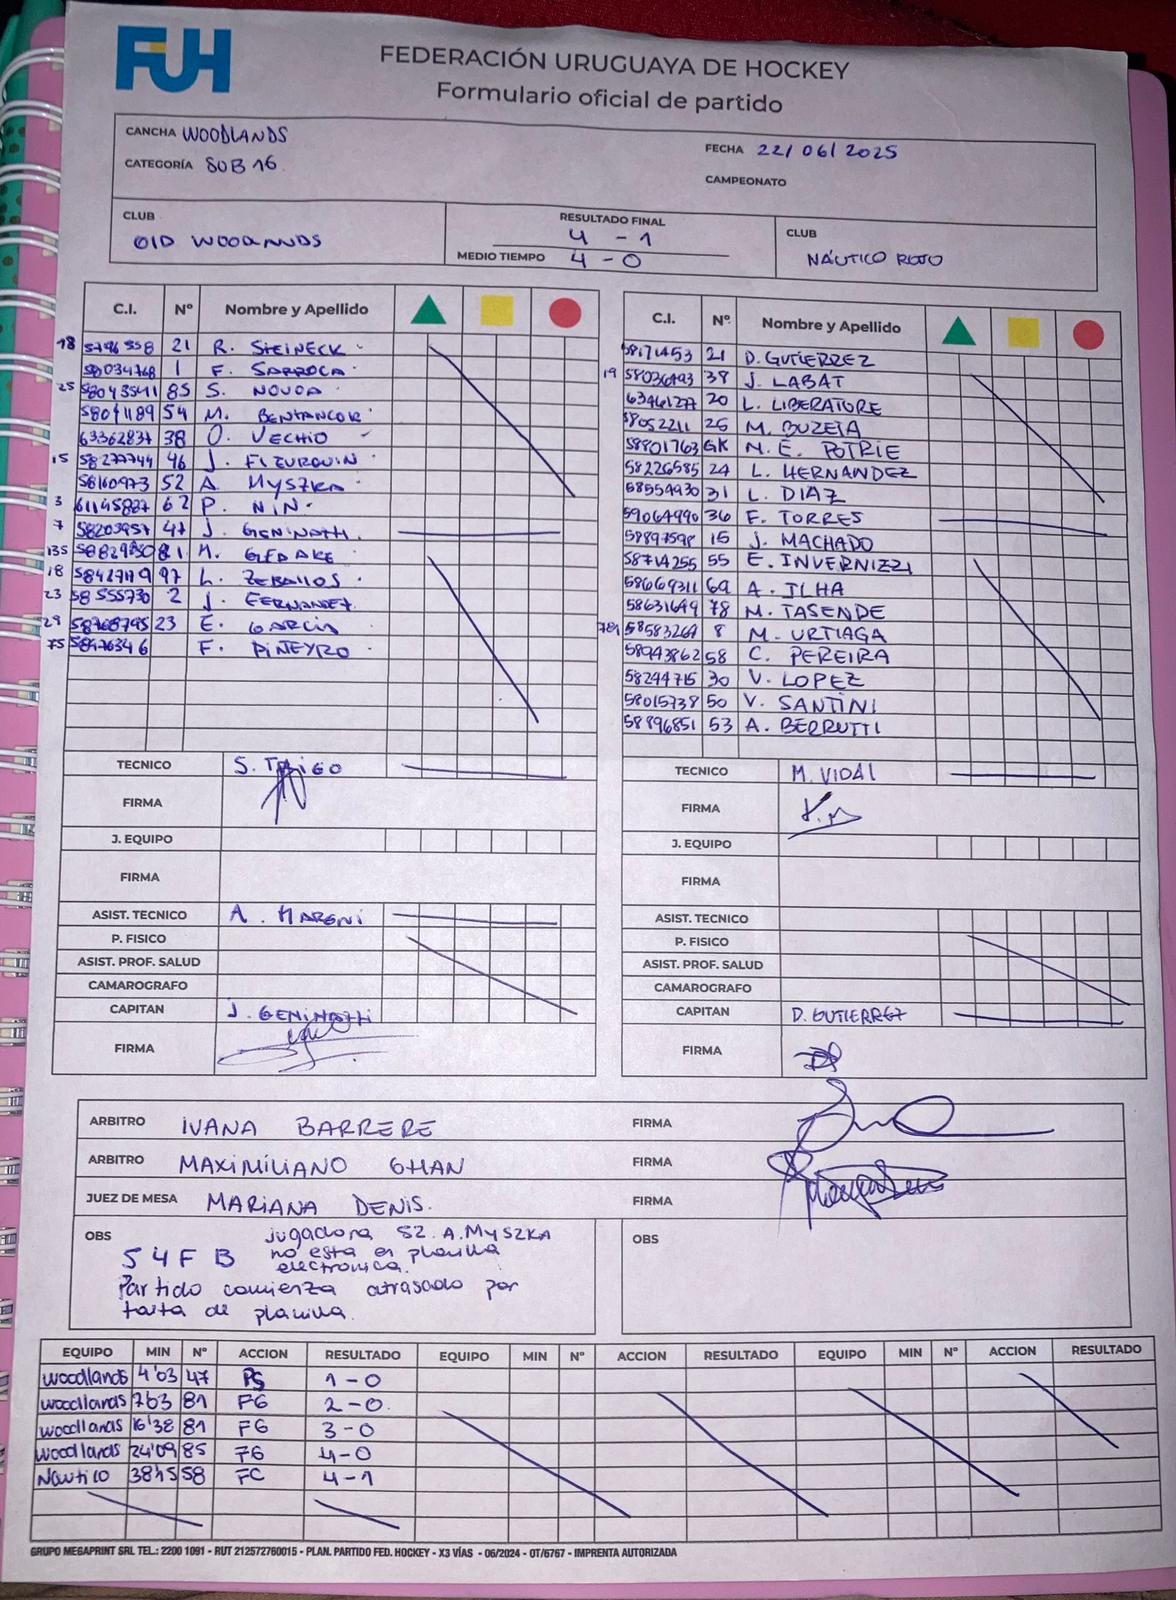 FUH
FEDERACIÓN URUGUAYA DE HOCKEY
Formulario oficial de partido
CANCHA WOODLANDS
FECHA 22/06/2025
CATEGORÍA SUB 16
CAMPEONATO
CLUB
OLD WOODLANDS
RESULTADO FINAL
4 - 1
MEDIO TIEMPO 4 - 0
CLUB
NÁUTICO ROJO
C.I. Nº Nombre y Apellido
21 R. STEINECK
58034768 1 F. SARROCA
25 58043541 85 S. NOVOA
58071189 54 M. BENTANCOR
63362837 38 O. VECHIO
15 58277744 46 J. FIZURQUIN
58160973 52 A. MYSZKA
3 61145887 62 P. NIN
7 58203957 47 J. GENINATTI
81 M. GEDAKE
18 58427119 97 L. ZEBALLOS
23 58555730 2 J. FERNANDEZ
29 58768795 23 E. GARCIA
75 58976346 F. PIÑEYRO
TECNICO S. TRIGO
FIRMA
J. EQUIPO
FIRMA
ASIST. TECNICO A. MARONI
P. FISICO
ASIST. PROF. SALUD
CAMAROGRAFO
CAPITAN J. GENINATTI
FIRMA
C.I. Nº Nombre y Apellido
58171453 21 D. GUTIERREZ
19 58036493 38 J. LABAT
63461277 20 L. LIBERATORE
58052211 26 M. BUZETA
58801763 GK M. E. POTRIE
58226585 24 L. HERNANDEZ
58554930 31 L. DIAZ
59064990 36 F. TORRES
58897598 15 J. MACHADO
58714255 55 E. INVERNIZZI
58669311 69 A. ILHA
58631649 78 M. TASENDE
58583269 8 M. URTIAGA
58943862 58 C. PEREIRA
58244715 30 V. LOPEZ
58015738 50 V. SANTINI
58896851 53 A. BERRUTTI
TECNICO M. VIDAL
FIRMA
J. EQUIPO
FIRMA
ASIST. TECNICO
P. FISICO
ASIST. PROF. SALUD
CAMAROGRAFO
CAPITAN D. GUTIERREZ
FIRMA
ARBITRO IVANA BARRERE FIRMA
ARBITRO MAXIMILIANO GHAN FIRMA
JUEZ DE MESA MARIANA DENIS. FIRMA
OBS jugadora 52. A. MYSZKA
54FB no esta en planilla
electronica.
Partido comienza atrasado por
falta de planilla.
OBS
EQUIPO MIN Nº ACCION RESULTADO EQUIPO MIN Nº ACCION RESULTADO EQUIPO MIN Nº ACCION RESULTADO
woodlands 4'03 47 PS 1 - 0
woodlands 7'03 81 FG 2 - 0
woodlands 16'38 81 FG 3 - 0
woodlands 24'09 85 FG 4 - 0
Náutico 38'45 58 FC 4 - 1
GRUPO MEGAPRINT SRL TEL.: 2200 1091 - RUT 212572760015 - PLAN. PARTIDO FED. HOCKEY - X3 VÍAS - 06/2024 - OT/6767 - IMPRENTA AUTORIZADA